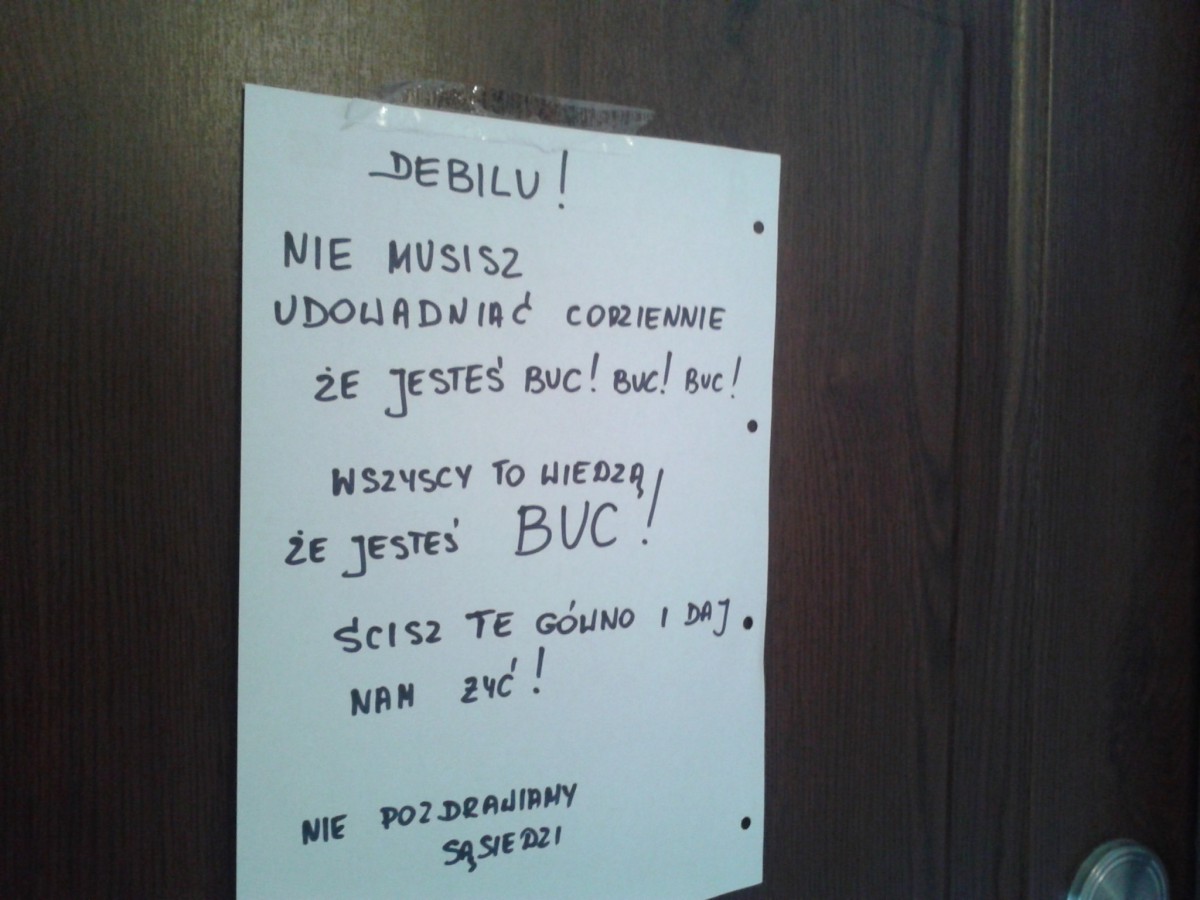 DEBILU!
NIE MUSISZ
UDOWADNIAĆ CODZIENNIE
ŻE JESTEŚ BUC! BUC! BUC!
WSZYSCY TO WIEDZĄ
ŻE JESTEŚ BUC!
ŚCISZ TE GÓWNO I DAJ
NAM ŻYĆ!
NIE POZDRAWIAMY
SĄSIEDZI